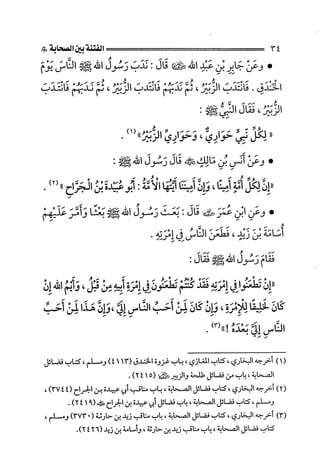 ٣٤ الفتنة بين الصحابة
• وعَنْ جَابِرِ بْنِ عَبْدِ اللهِ ﵁ قَالَ : نَدَبَ رَسُولُ اللهِ ﷺ النَّاسَ يَوْمَ
الْخَنْدَقِ . فَانْتَدَبَ الزُّبَيْرُ ، ثُمَّ نَدَبَهُمْ فَانْتَدَبَ الزُّبَيْرُ ، ثُمَّ نَدَبَهُمْ فَانْتَدَبَ
الزُّبَيْرُ ، فَقَالَ النَّبِيُّ ﷺ :
« لِكُلِّ نَبِيٍّ حَوَارِيٌّ ، وَحَوَارِيَّ الزُّبَيْرُ » (١) .
• وعَنْ أَنَسِ بْنِ مَالِكٍ ﵁ قَالَ رَسُولُ اللهِ ﷺ :
« إِنَّ لِكُلِّ أُمَّةٍ أَمِينًا ، وَإِنَّ أَمِينَنَا أَيَّتُهَا الْأُمَّةُ : أَبُو عُبَيْدَةَ بْنُ الْجَرَّاحِ » (٢) .
• وعَنِ ابْنِ عُمَرَ ﵁ قَالَ : بَعَثَ رَسُولُ اللهِ ﷺ بَعْثًا وَأَمَّرَ عَلَيْهِمْ
أُسَامَةَ بْنَ زَيْدٍ ، فَطَعَنَ النَّاسُ فِي إِمْرَتِهِ .
فَقَامَ رَسُولُ اللهِ ﷺ فَقَالَ :
« إِنْ تَطْعَنُوا فِي إِمْرَتِهِ فَقَدْ كُنْتُمْ تَطْعَنُونَ فِي إِمْرَةِ أَبِيهِ مِنْ قَبْلُ ، وَأَيْمُ اللهِ إِنْ
كَانَ خَلِيقًا لِلْإِمْرَةِ ، وَإِنْ كَانَ لَمِنْ أَحَبِّ النَّاسِ إِلَيَّ ، وَإِنَّ هَذَا لَمِنْ أَحَبِّ
النَّاسِ إِلَيَّ بَعْدَهُ ! » (٣) .
(١) أخرجه البخاري ، كتاب المغازي ، باب غزوة الخندق (٤١١٣) ومسلم ، كتاب فضائل
الصحابة ، باب من فضائل طلحة والزبير ﵄ (٢٤١٥) .
(٢) أخرجه البخاري ، كتاب فضائل الصحابة ، باب مناقب أبي عبيدة بن الجراح (٣٧٤٤) ،
ومسلم ، كتاب فضائل الصحابة ، باب فضائل أبي عبيدة بن الجراح ﵁ (٢٤١٩) .
(٣) أخرجه البخاري ، كتاب فضائل الصحابة ، باب مناقب زيد بن حارثة (٣٧٣٠) ومسلم ،
كتاب فضائل الصحابة ، باب فضائل زيد بن حارثة ، وأسامة بن زيد (٢٤٢٦) .